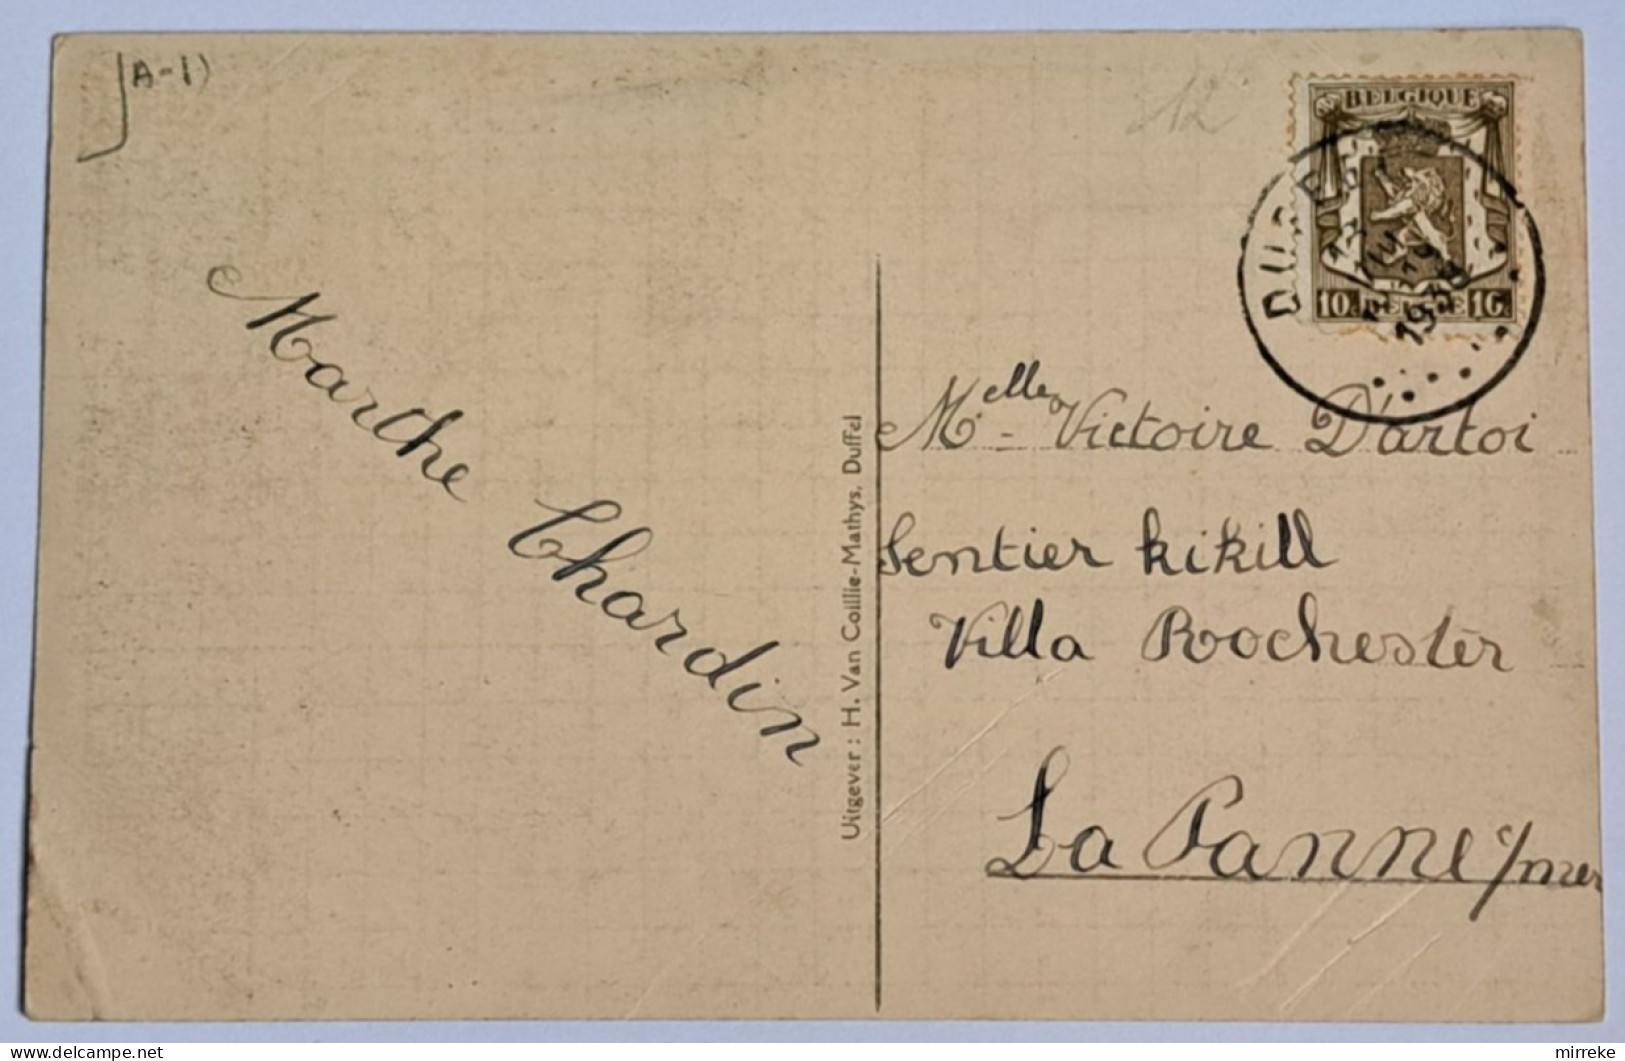 A-1)
12
BELGIQUE
10c BELGIE 10c
1938
Marche Chardin
Uitgever : H. Van Coillie-Mathys, Duffel
Melle Victoire D'artoi
Sentier kikill
Villa Rochester
La Panne s/mer
mirreke